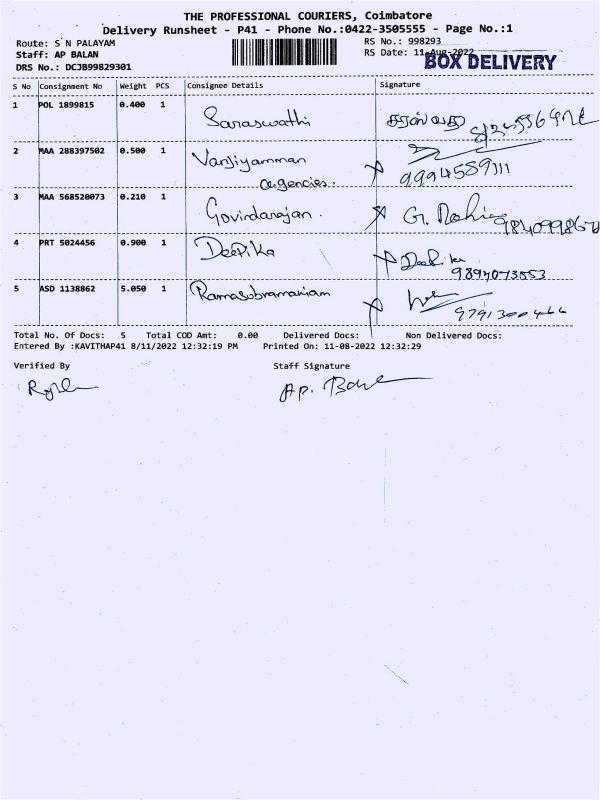 THE PROFESSIONAL COURIERS, Coimbatore
Delivery Runsheet - P41 - Phone No.:0422-3505555 - Page No.:1
Route: S N PALAYAM RS No.: 998293
Staff: AP BALAN RS Date: 11-Aug-2022
BOX DELIVERY
DRS No.: DCJB99829301
S No Consignment No Weight PCS Consignee Details Signature
1 POL 1899815 0.400 1 Saraswathi சரஸ்வதி
2 MAA 288397502 0.500 1 Vanjiyamman
agencies. 9994559111
3 MAA 568520073 0.210 1 Govindarajan.
4 PRT 5024456 0.900 1 Deepika Deepika
9894073553
5 ASD 1138862 5.050 1 Ramasubramaniam
9791300466
Total No. Of Docs: 5 Total COD Amt: 0.00 Delivered Docs: Non Delivered Docs:
Entered By :KAVITHAP41 8/11/2022 12:32:19 PM Printed On: 11-08-2022 12:32:29
Verified By Staff Signature
AP.